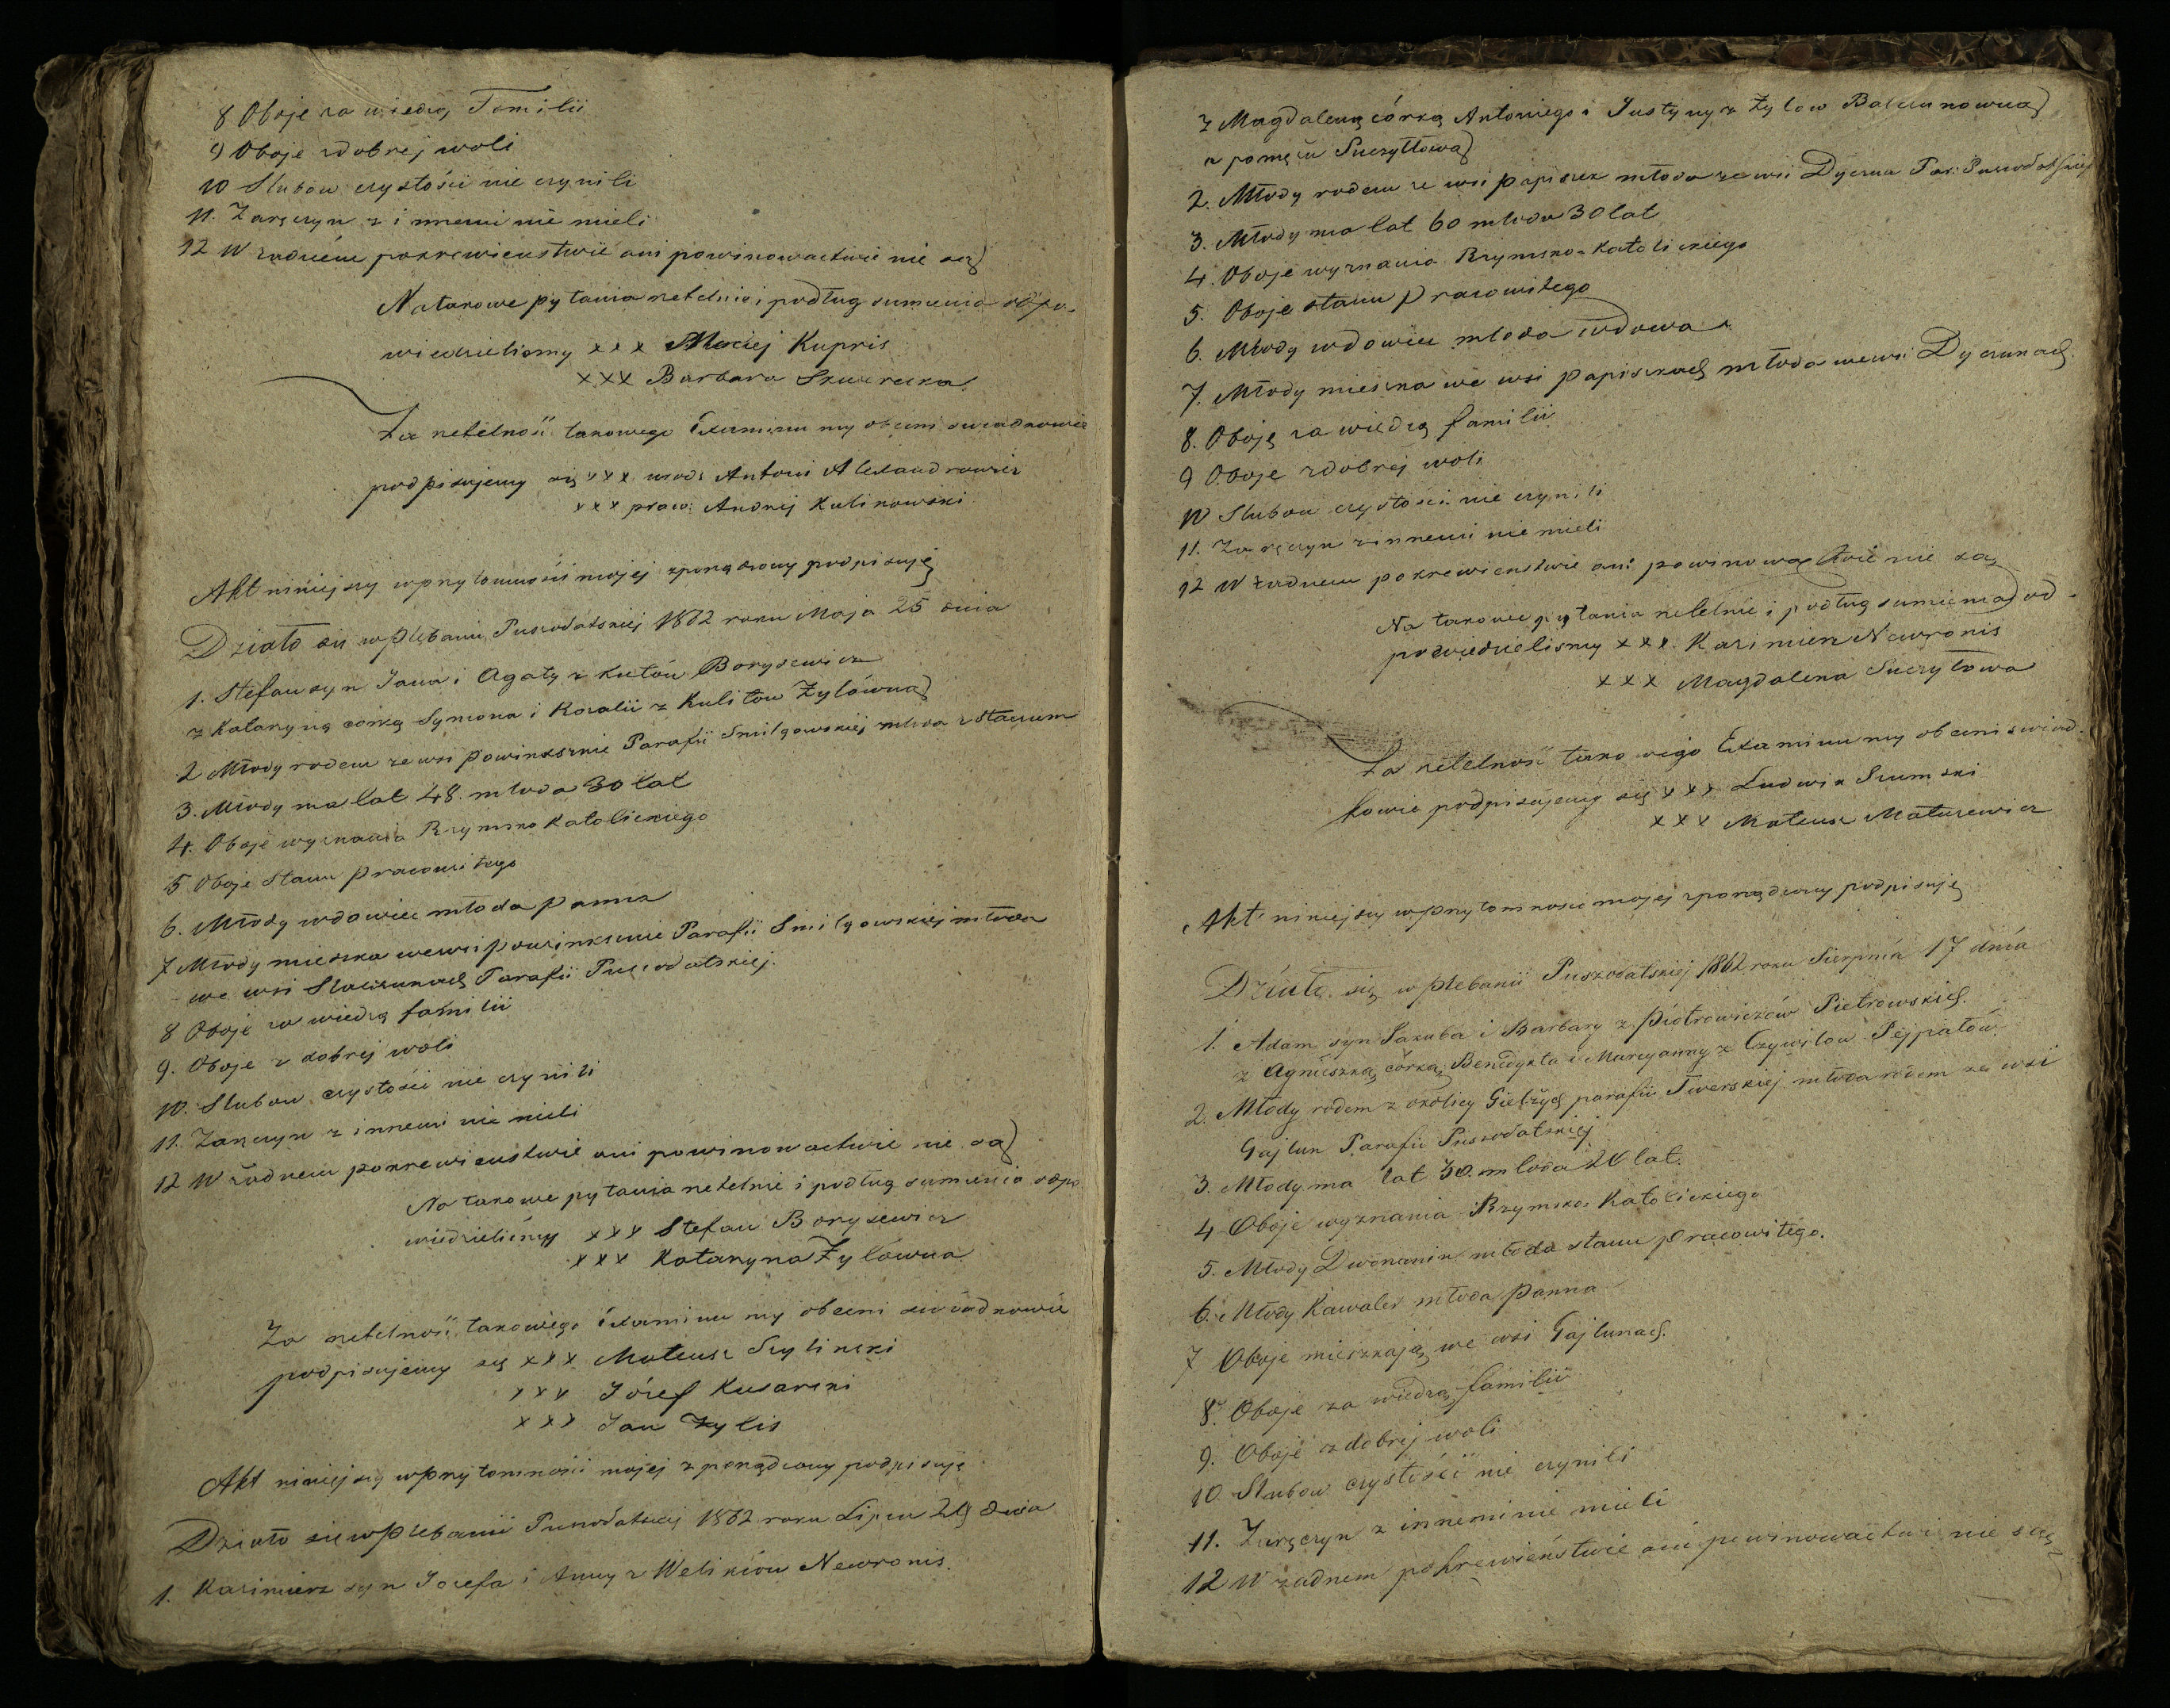 8 Oboje za wiedzą Familii
9 Oboje z dobrej woli
10 Slubow czystości nie czynili
11. Zaręczyn z innemi nie mieli
12 W żadném pokrewieństwie ani powinowactwie nie są
Na takowe pytania rzetelnie i podług sumienia odpo-
wiedzieliśmy xxx Maciej Kupris
xxx Barbara
Za rzetelność takowego Examinu my obecni swiadkowie
podpisujemy się xxx Antoni Alexandrowicz
xxx prac: Andrzej Kulinowski
Akt niniejszy w przytomności mojej zporządzony podpisuję
Działo się w Plebanii Puszołatskiej 1862 roku Maja 25 dnia
1. Stefan syn Jana i Agaty z Borysewicz
z Kataryną córką Symona i Rozalii z Kulitow Żylówną
2 Młody rodem ze wsi Powinksznie Parafii Smilgowskiej młoda z
3. Młody ma lat 48. młoda 30 lat
4. Oboje wyznania Rzymsko Katolickiego
5 Oboje stanu pracowitego
6. Młody wdowiec młoda panna
7 Młody mieszka we wsi Powinksznie Parafii Smilgowskiej młoda
we wsi Parafii Puszołatskiej.
8 Oboje za wiedzą familii
9. Oboje z dobrej woli
10. Slubow czystości nie czynili
11. Zaręczyn z innemi nie mieli
12 W żadnem pokrewieństwie ani powinowactwie nie są
Na takowe pytania rzetelnie i podług sumienia odpo
wiedzieliśmy xxx Stefan Borysewicz
xxx Kataryna Żylówna
Za rzetelność takowego Examinu my obecni swiadkowie
podpisujemy się xxx Mateusz Szylinski
xxx Józef Kusarski
xxx Jan Zylis
Akt niniejszy w przytomności mojej zporządzony podpisuję
Działo się w Plebanii Puszołatskiej 1862 roku Lipca 29 dnia
1. Kazimierz syn Jozefa i Anny z Welikiów Newronis.
z Magdaleną córką Antoniego i Justyny z Żylow Balczunowną
a po mężu Suczyłłową
2. Młody rodem ze wsi Papiszek młoda ze wsi Dyczun Par: Puszołatskiej
3. Młody ma lat 60 młoda 30 lat
4. Oboje wyznania Rzymsko-Katolickiego
5. Oboje stanu pracowitego
6. Młody wdowiec młoda wdowa
7. Młody mieszka we wsi Papiszkach młoda we wsi Dyczunach
8. Oboje za wiedzą familii
9 Oboje z dobrej woli
10 Slubow czystości nie czynili
11. Zaręczyn z innemi nie mieli
12 W żadnem pokrewieństwie ani powinowactwie nie są
Na takowe pytania rzetelnie i podług sumienia od-
powiedzieliśmy xxx Kazimierz Newronis
xxx Magdalena Suczyłowa
Za rzetelność takowego Examinu my obecni swiad-
kowie podpisujemy się xxx Ludwik Szumski
xxx Mateusz Matusewicz
Akt niniejszy w przytomności mojej zporządzony podpisuję
Działo się w Plebanii Puszołatskiej 1862 roku Sierpnia 17 dnia
1. Adam syn Jakuba i Barbary z Piotrowiczów Pietrowskich.
z Agnieszką córką Benedykta i Maryanny z Czywilow Pejpałów
2. Młody rodem z okolicy parafii Twerskiej młoda rodem ze wsi
Gajlun Parafii Puszołatskiej
3. Młody ma lat 30. młoda 20 lat.
4 Oboje wyznania Rzymsko-Katolickiego
5. Młody Dworzanin młoda stanu pracowitego.
6. Młody Kawaler młoda Panna
7 Oboje mieszkają we wsi Gajlunach.
8. Oboje za wiedzą familii
9. Oboje z dobrej woli
10. Slubow czystości nie czynili
11. Zaręczyn z innemi nie mieli
12 W żadnem pokrewieństwie ani powinowactwie nie są